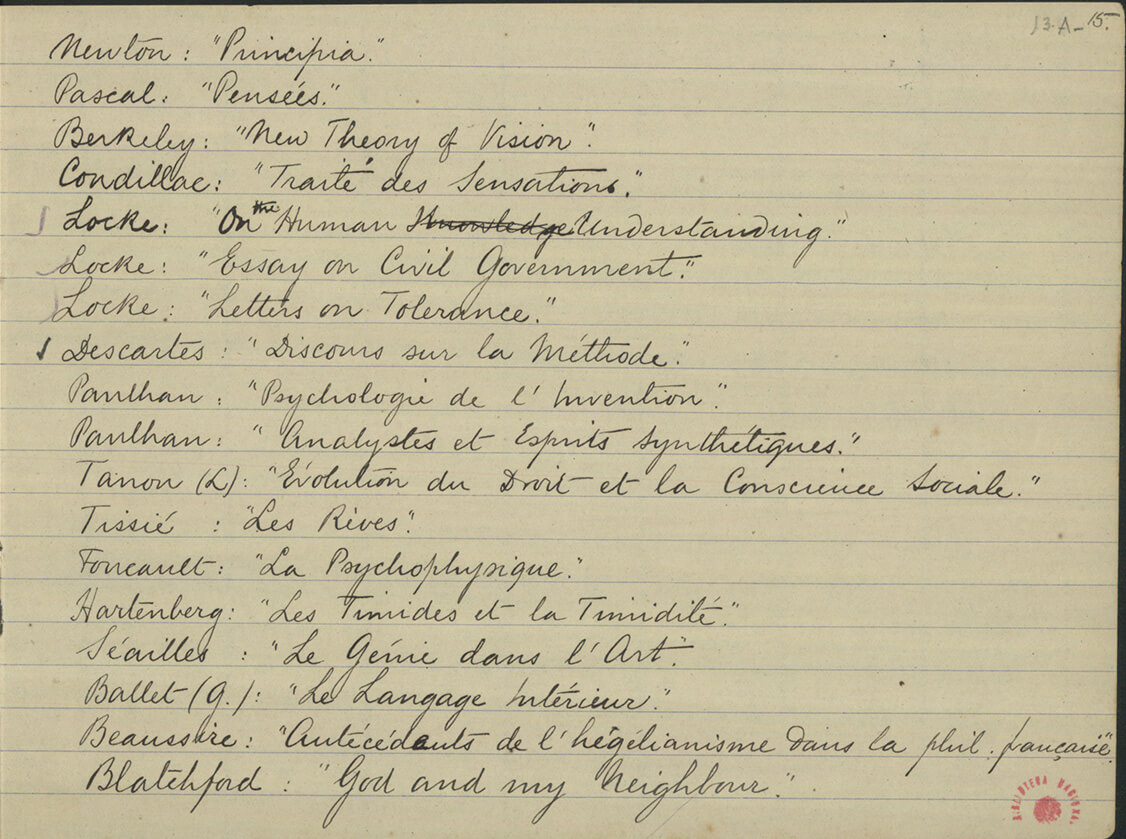 13-A-15.
Newton: "Principia."
Pascal: "Pensées."
Berkeley: "New Theory of Vision".
Condillac: "Traité des Sensations."
Locke: "On the Human Knowledge Understanding."
Locke: "Essay on Civil Government."
Locke: "Letters on Tolerance."
Descartes: "Discours sur la Méthode."
Paulhan: "Psychologie de l'Invention".
Paulhan: "Analystes et Esprits synthétiques."
Tanon (L): "Evolution du Droit et la Conscience Sociale."
Tissié: "Les Rêves".
Foucault: "La Psychophysique."
Hartenberg: "Les Timides et la Timidité."
Séailles: "Le Génie dans l'Art".
Ballet (G.): "Le Langage Intérieur".
Beaussire: "Antécédents de l'hégélianisme dans la phil. française"
Blatchford: "God and my Neighbour".
BIBLIOTECA NACIONAL